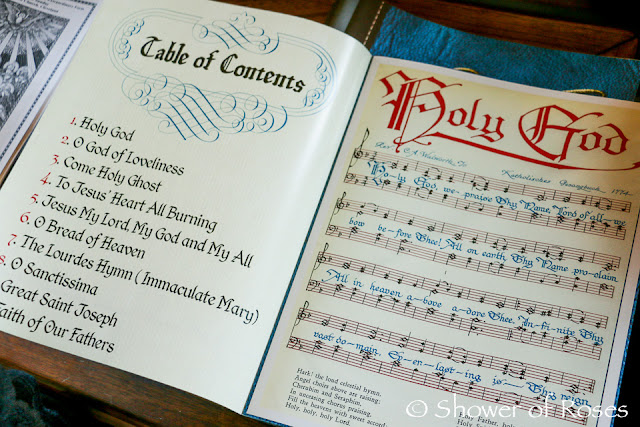 Table of Contents
1. Holy God
2. O God of Loveliness
3. Come Holy Ghost
4. To Jesus' Heart All Burning
5. Jesus My Lord, My God and My All
6. O Bread of Heaven
7. The Lourdes Hymn (Immaculate Mary)
8. O Sanctissima
Great Saint Joseph
Faith of Our Fathers
Holy God
Katholisches Gesangbuch, 1774
Ho-ly God, we praise Thy Name, Lord of all, we
bow be-fore Thee! All on earth Thy Name pro-claim
All in heaven a-bove a-dore Thee. In-fi-nite Thy
vast do-main, Ev-er-last-ing is Thy reign
Hark! the loud celestial hymn,
Angel choirs above are raising;
Cherubim and Seraphim,
In unceasing chorus praising,
Fill the heavens with sweet accord
Holy, holy, holy Lord.
Holy Father, ho
© Shower of Roses